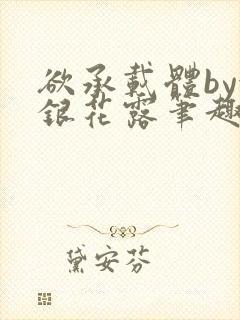 欲承载體by
銀花露筆趣
黛安芬